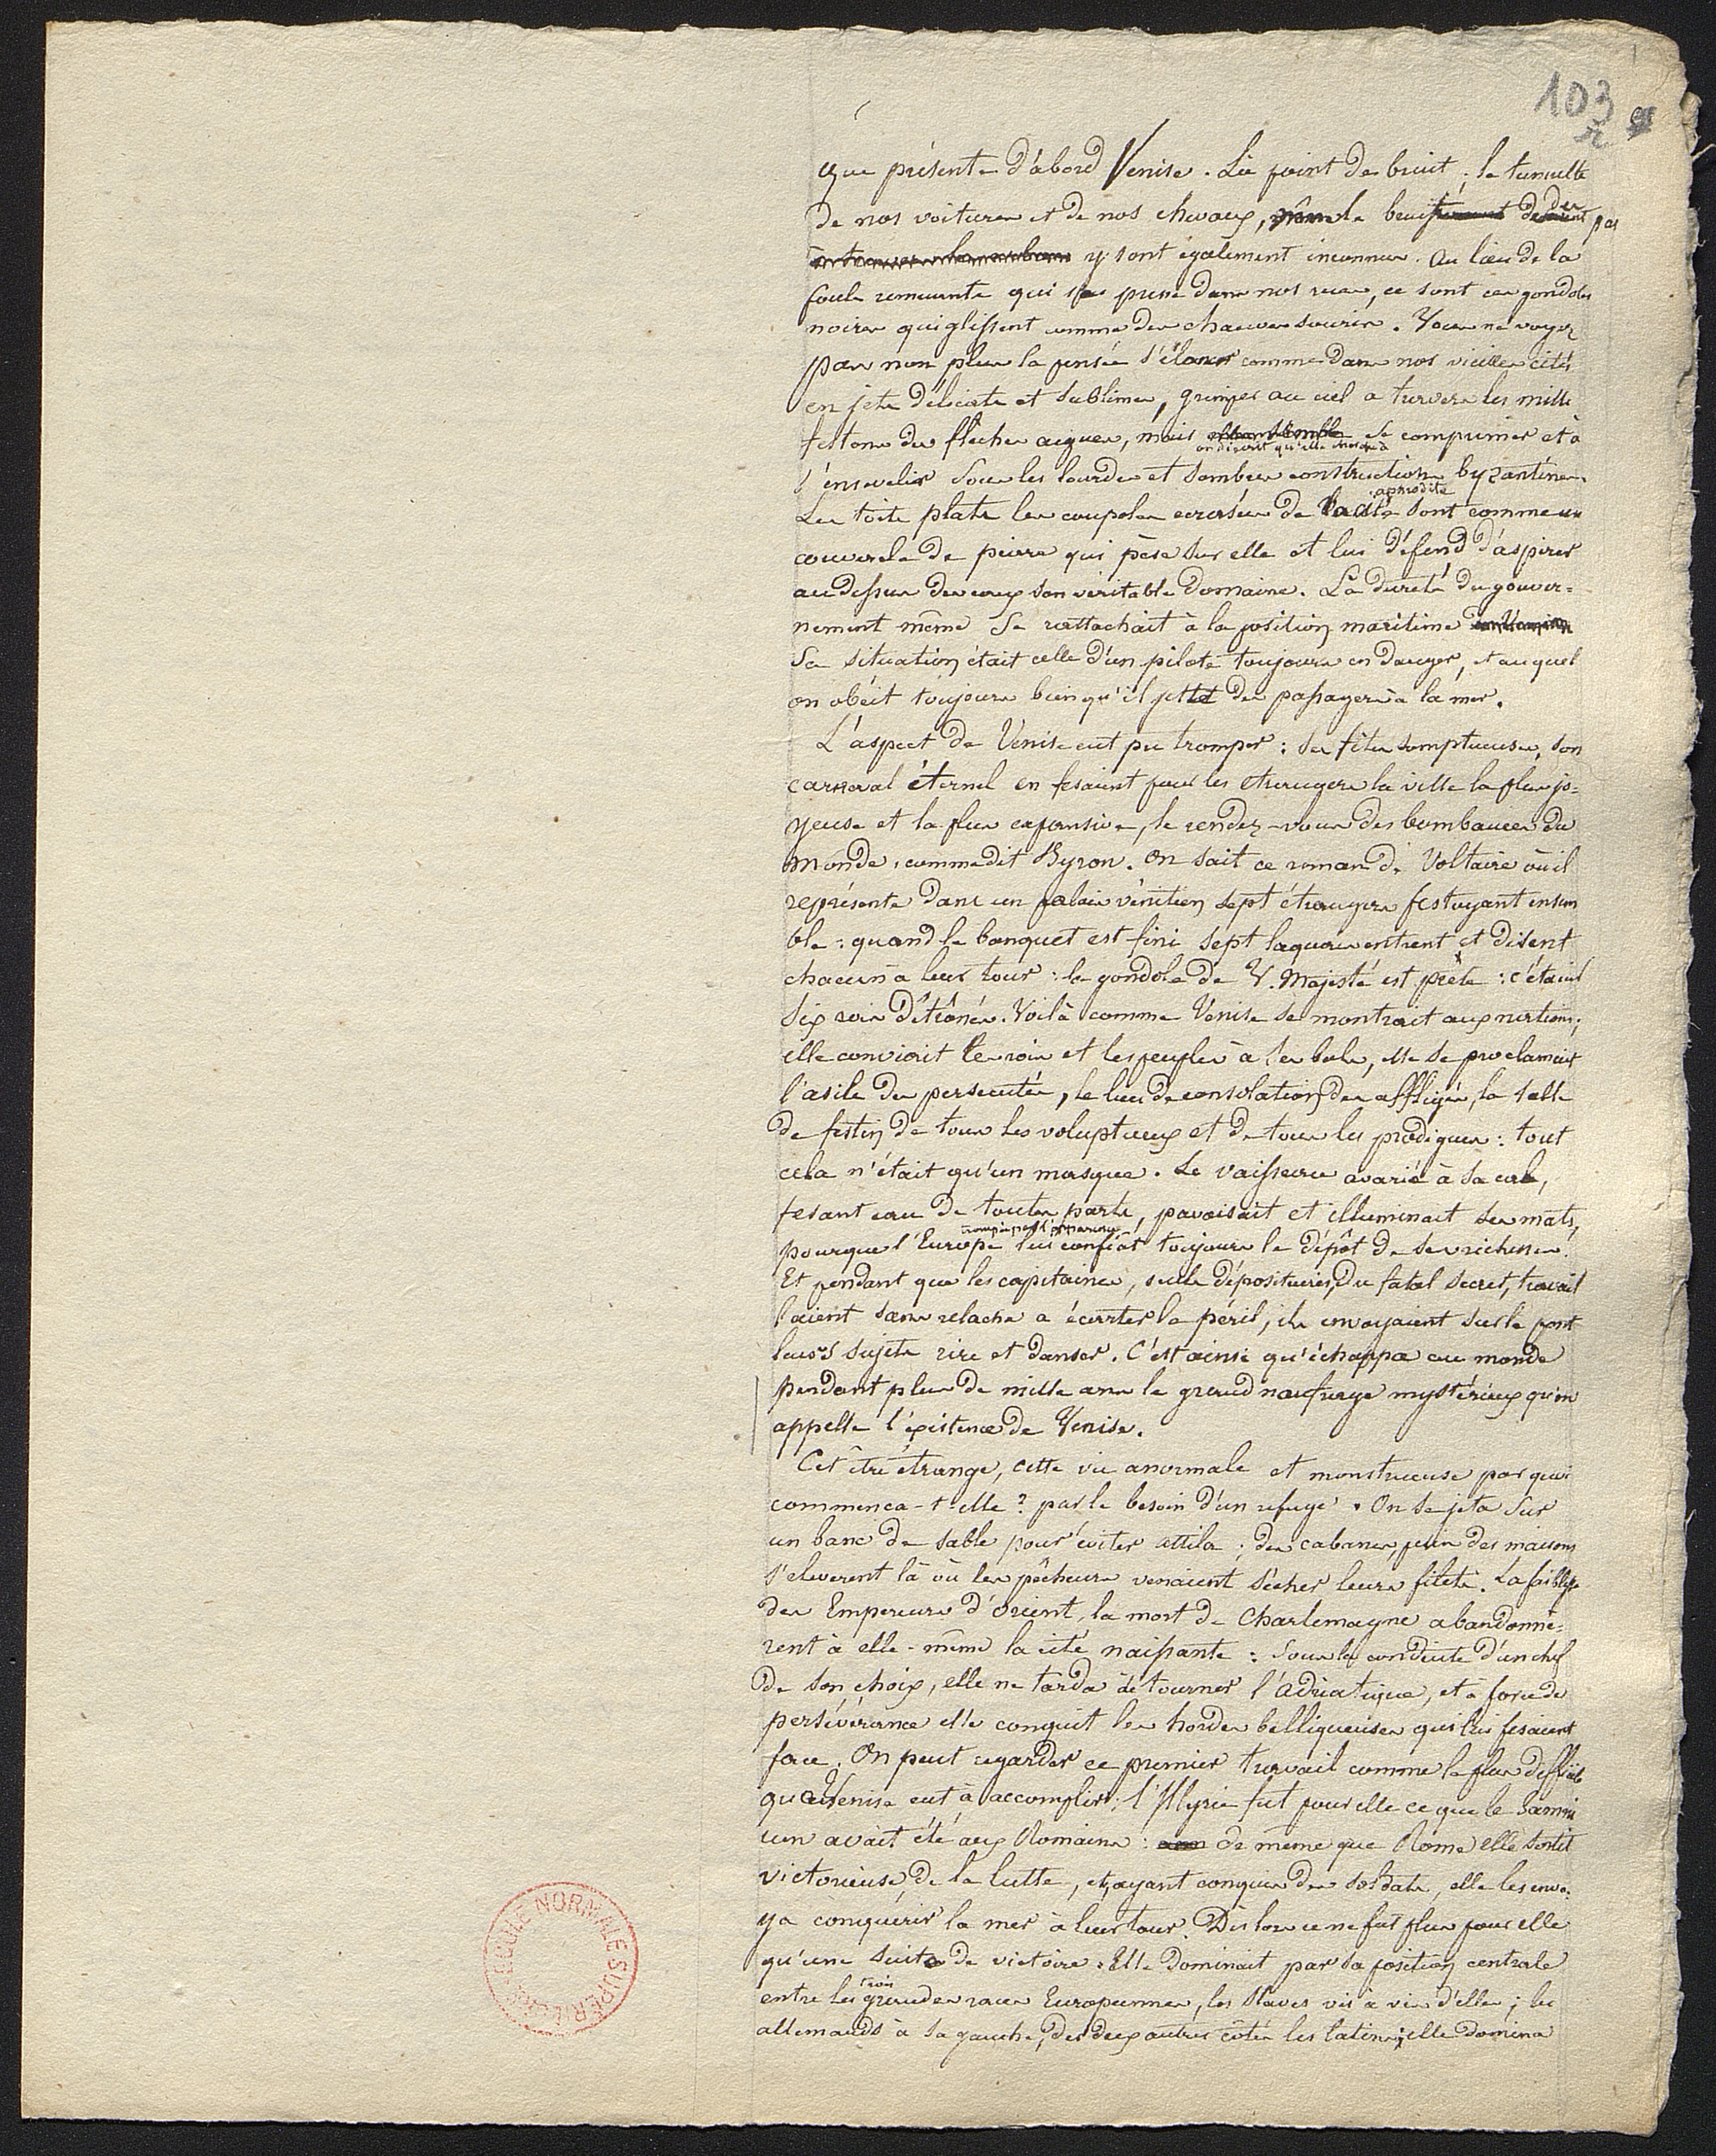 103
r
que présente d'abord Venise. Là point de bruit, le tumulte
de nos voitures et de nos chevaux, même le bruissement des pas
y sont également inconnus. Au lieu de la
foule remuante qui se presse dans nos rues, ce sont ces gondoles
noires qui glissent comme des chauves souris. Vous ne voyez
pas non plus la pensée s'élancer comme dans nos vieilles cités
en jets délicats et sublimes, grimper au ciel a travers les mille
festons des flèches aigues, mais se comprimer et à
on dirait qu'elle cherche à
s'ensevelir sous les lourdes et sombres constructions byzantines.
aphrodite
Les toits plats les coupoles ecrasées de la cité sont comme un
couvercle de pierre qui pèse sur elle et lui défend d'aspirer
au dessus des eaux son véritable domaine. La dureté du gouver-
nement même se rattachait à la position maritime
Sa situation était celle d'un pilote toujours en danger, et auquel
on obéit toujours bien qu'il jette des passagers à la mer.
L'aspect de Venise eut pu tromper : ses fêtes somptueuses, son
carnaval éternel en fesaient pour les etrangers la ville la plus jo-
yeuse et la plus expansive, le rendez-vous des bombances du
monde, comme dit Byron. On sait ce roman de Voltaire où il
représente dans un palais vénitien sept étrangers festoyant ensem
ble : quand le banquet est fini sept laquais entrent et disent
chacun à leur tour : la gondole de V. Majesté est prête : c'étaient
six rois détrônés. Voilà comme Venise se montrait aux nations ;
elle conviait les rois et les peuples à ses bals, elle se proclamait
l'asile des persecutés, le lieu de consolation des affligés, la salle
de festin de tous les voluptueux et de tous les prodigues : tout
cela n'était qu'un masque. Le vaisseau avarié à sa cale,
fesant eau de toutes parts, pavoisait et illuminait ses mats,
trompée par l'apparence
pour que l'Europe lui confiât toujours le dépôt de ses richesses.
Et pendant que les capitaines, seuls dépositaires du fatal secret, travail
laient sans relache a écarter le péril, ils envoyaient sur le pont
leurs sujets rire et danser. C'est ainsi qu'échappa au monde
pendant plus de mille ans le grand naufrage mystérieux qu'on
appelle l'existence de Venise.
Cet être étrange, cette vie anormale et monstrueuse par quoi
commença-t-elle ? par le besoin d'un refuge. On se jeta sur
un banc de sable pour éviter attila ; des cabanes, puis des maisons
s'eleverent là où les pêcheurs venaient sécher leurs filets. La faiblesse
des Empereurs d'Orient, la mort de Charlemagne abandonnè-
rent à elle-même la cité naissante : sous la conduite d'un chef
de son choix, elle ne tarda à tourner l'adriatique, et à force de
persévérance elle conquit les hordes belliqueuses qui lui fesaient
face. On peut regarder ce premier travail comme le plus difficile
que Venise eut à accomplir ; l'Illyrie fut pour elle ce que le Samni
um avait été aux Romains : de même que Rome elle sortit
victorieuse de la lutte, et, ayant conquis des soldats, elle les envo-
ya conquérir la mer à leur tour. Dès lors ce ne fut plus pour elle
qu'une suite de victoires. Elle dominait par sa position centrale
trois
entre les grandes races Européennes, les Slaves vis à vis d'elle ; les
allemands à sa gauche, des deux autres cotés les latins ; elle domina
ECOLE NORMALE SUPERIEURE